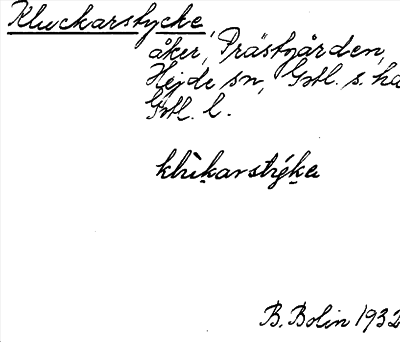 Kluckarstycke,
åker, Prästgården,
Hejde sn, Gotl. s. hd
Gotl. l.
klùkarstýka
B. Bolin 1932